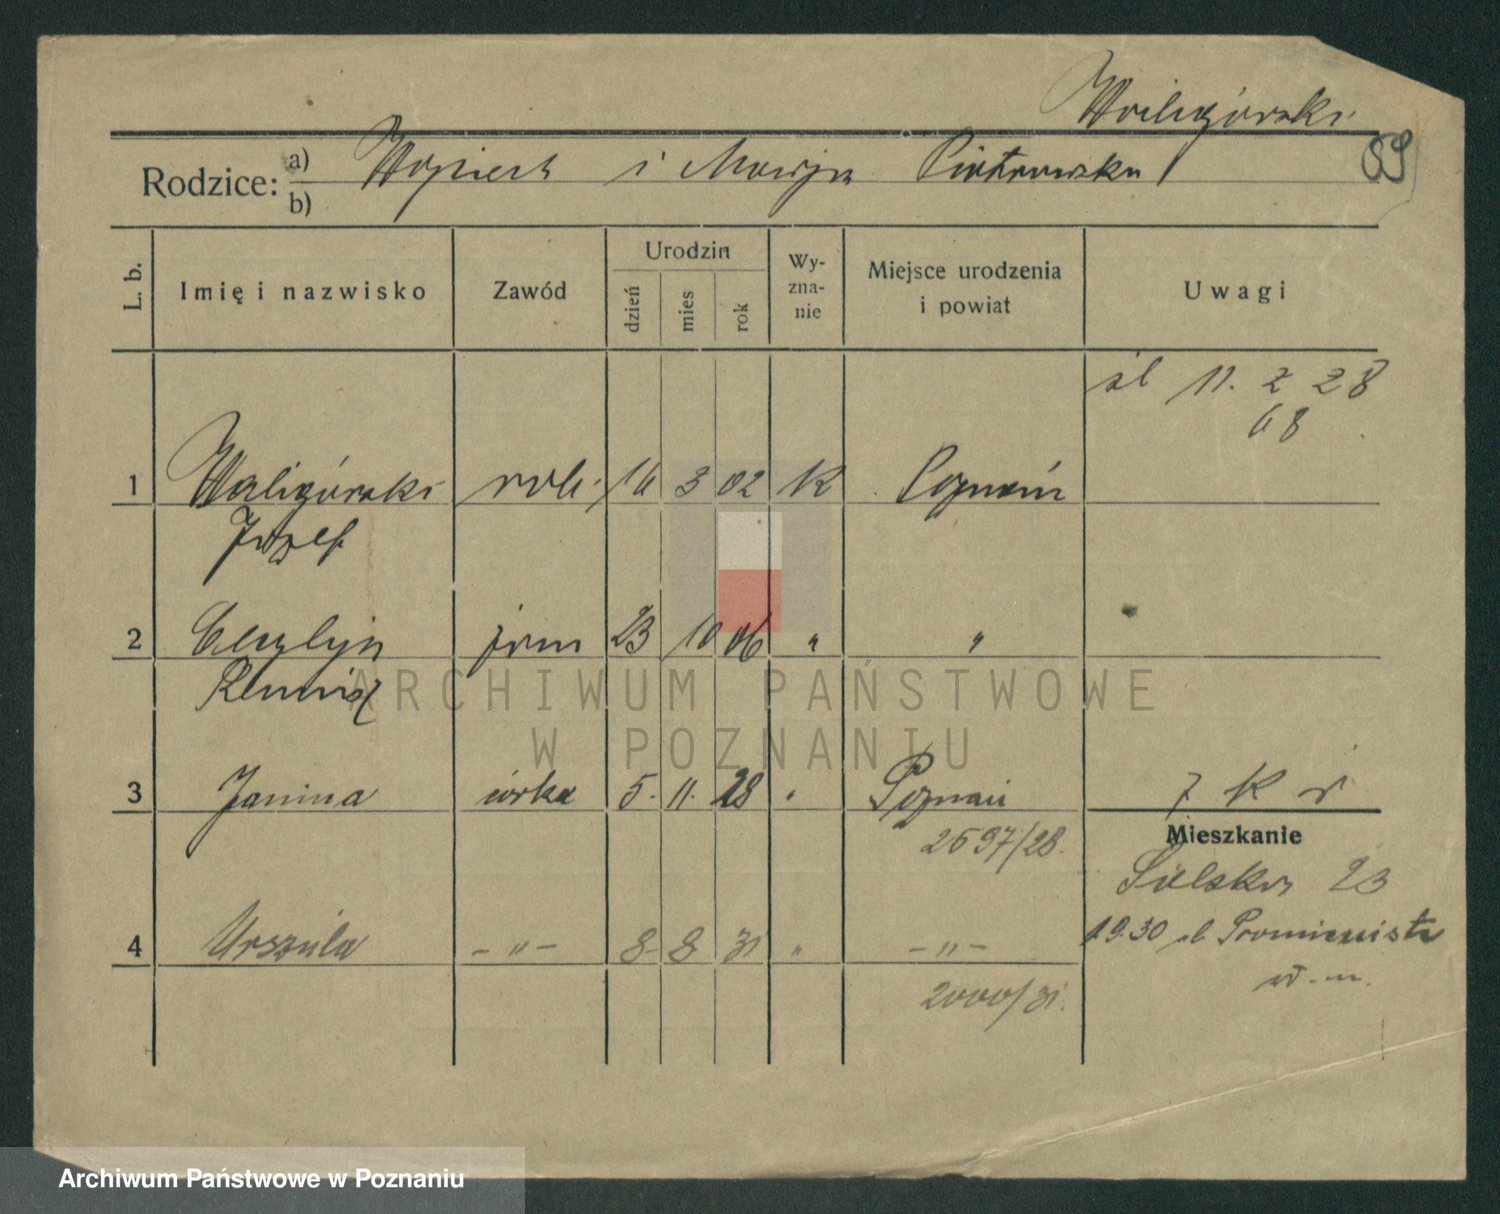 Waligórski
59
Rodzice: a) Wojciech i Marja Piotrowska
b)
L. b.
Imię i nazwisko
Zawód
Urodzin
dzień
mies
rok
Wy-
zna-
nie
Miejsce urodzenia
i powiat
Uwagi
śl 11. 2 28
68
1 Waligórski rob. 14 3 02 K Poznań
Józef
2 Cecylja żona 23 10 06 " "
3 Janina córka 5. 11. 28 " Poznań
2697/28.
4 Urszula – " – 8 8 31 " – " –
2000/31.
Mieszkanie
Sielska 23
1930 ul. Promienista
ARCHIWUM PAŃSTWOWE
W POZNANIU
Archiwum Państwowe w Poznaniu